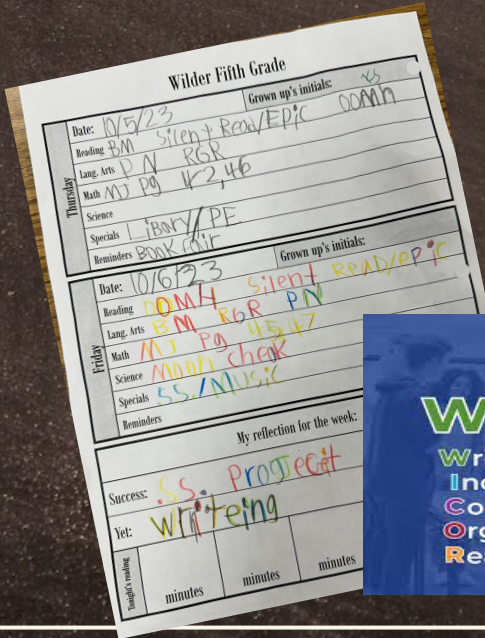 Wilder Fifth Grade
Thursday
Date: 10/5/23
Grown up's initials:
Reading BM Silent Read/Epic OOMh
Lang. Arts P N RGR
Math MJ Pg 42,46
Science
Specials Libary/PE
Reminders Book fair
Friday
Date: 10/6/23
Grown up's initials:
Reading OOMH Silent Read/epic
Lang. Arts BM RGR PN
Math MJ Pg 45,47
Science Moon check
Specials S.S./Music
Reminders
My reflection for the week:
Success: S.S. Progject
Yet: writeing
Tonight's reading
minutes
minutes
minutes
W
Wr
Co
Re